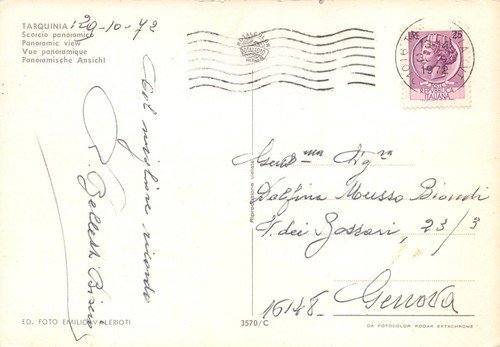 TARQUINIA : 29-10-72
Scorcio panoramico
Panoramic view
Vue panoramique
Panoramische Ansicht
Col migliore ricordo
ED. FOTO EMILIO VALERIOTI
3570/C
Riproduzione vietata
LIRE 25
REPUBBLICA
ITALIANA
1972
Gent.ma Sig.ra
Delfina Musso Biondi
23/3
16148 Genova
DA FOTOCOLOR KODAK EKTACHROME